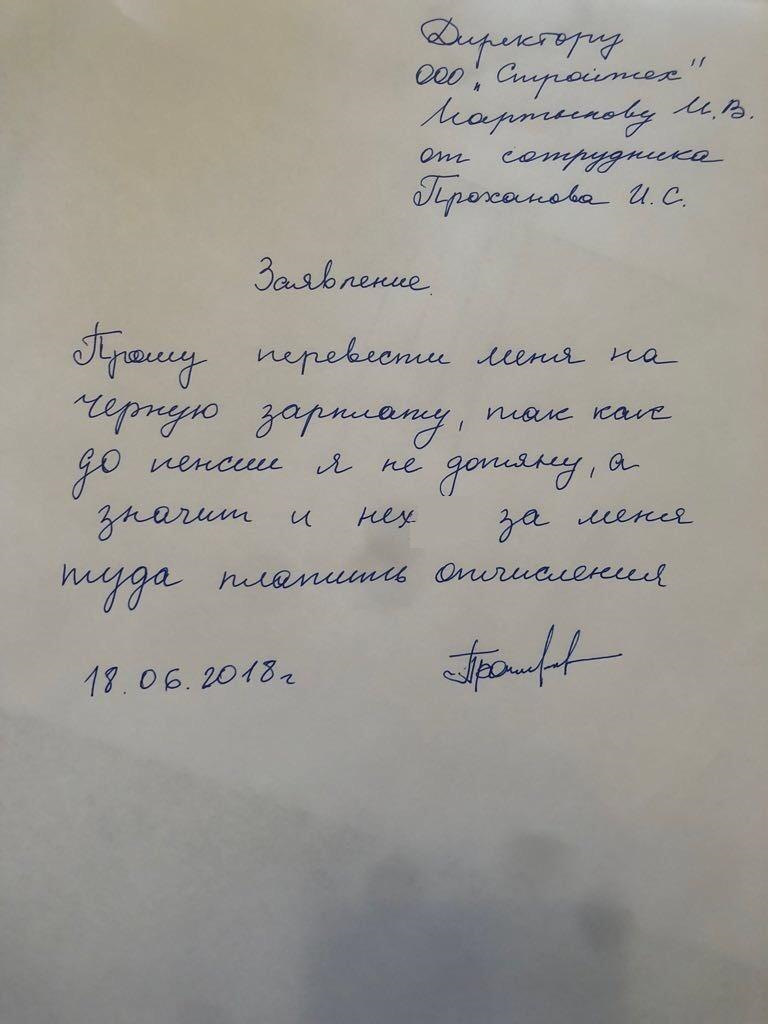 Директору
ООО „Стройтех"
Мартынову И.В.
от сотрудника
Проханова И.С.
Заявление.
Прошу перевести меня на
черную зарплату, так как
до пенсии я не дотяну, а
значит и нех за меня
туда платить отчисления
18.06.2018г